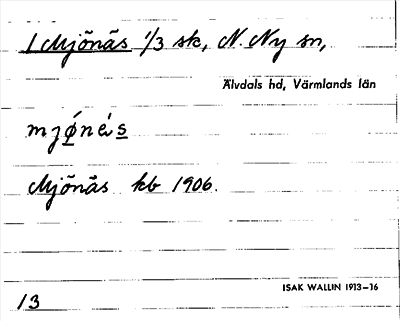 1 Mjönäs 1/3 sk, N. Ny sn,
Älvdals hd, Värmlands län
mjǿnés
Mjönäs kb 1906.
ISAK WALLIN 1913–16
13